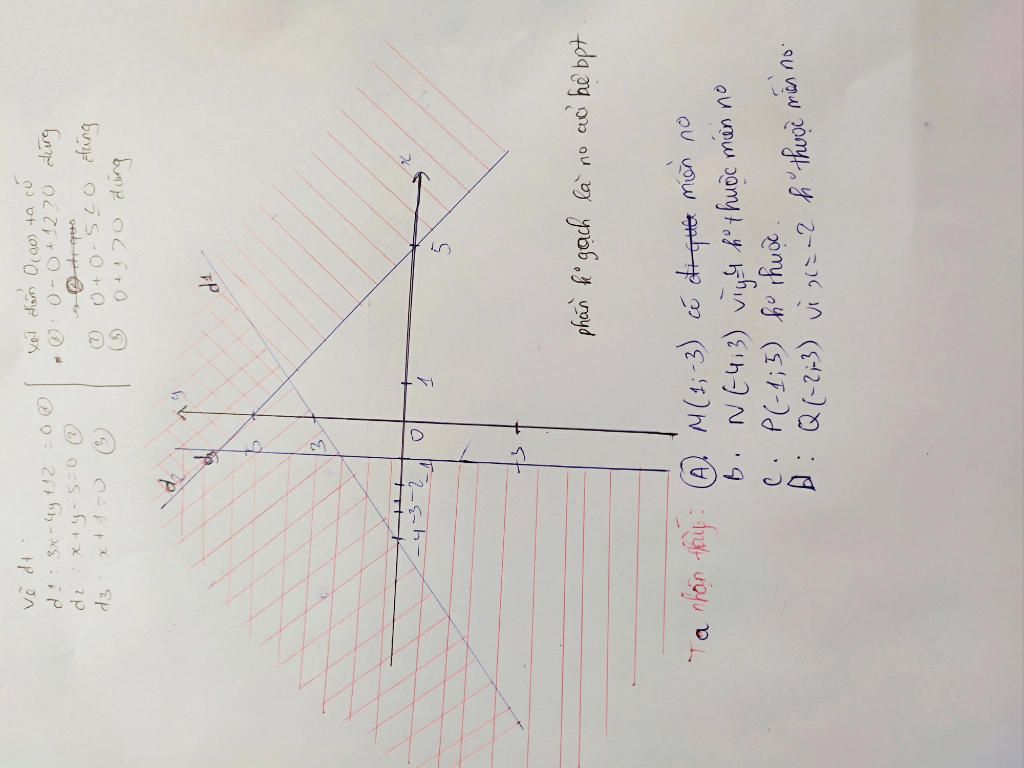 Vẽ đt :
d1 : 3x - 4y + 12 = 0 ①
d2 : x + y - 5 = 0 ②
d3 : x + 1 = 0 ③
xét điểm O(0;0) ta có:
① : 0 - 0 + 12 ≥ 0 đúng
② 0 + 0 - 5 ≤ 0 đúng
③ 0 + 1 > 0 đúng
y
d2
d3
d1
5
3
x
-4 -3 -2 -1 0 1 5
-3
phần k° gạch là no của hệ bpt
Ta nhận thấy :
Ⓐ. M(1;-3) có miền no
B. N(-4;3) vì y=4 k° thuộc miền no
C. P(-1;5) k° thuộc.
D : Q(-2;-3) vì x=-2 k° thuộc miền no.